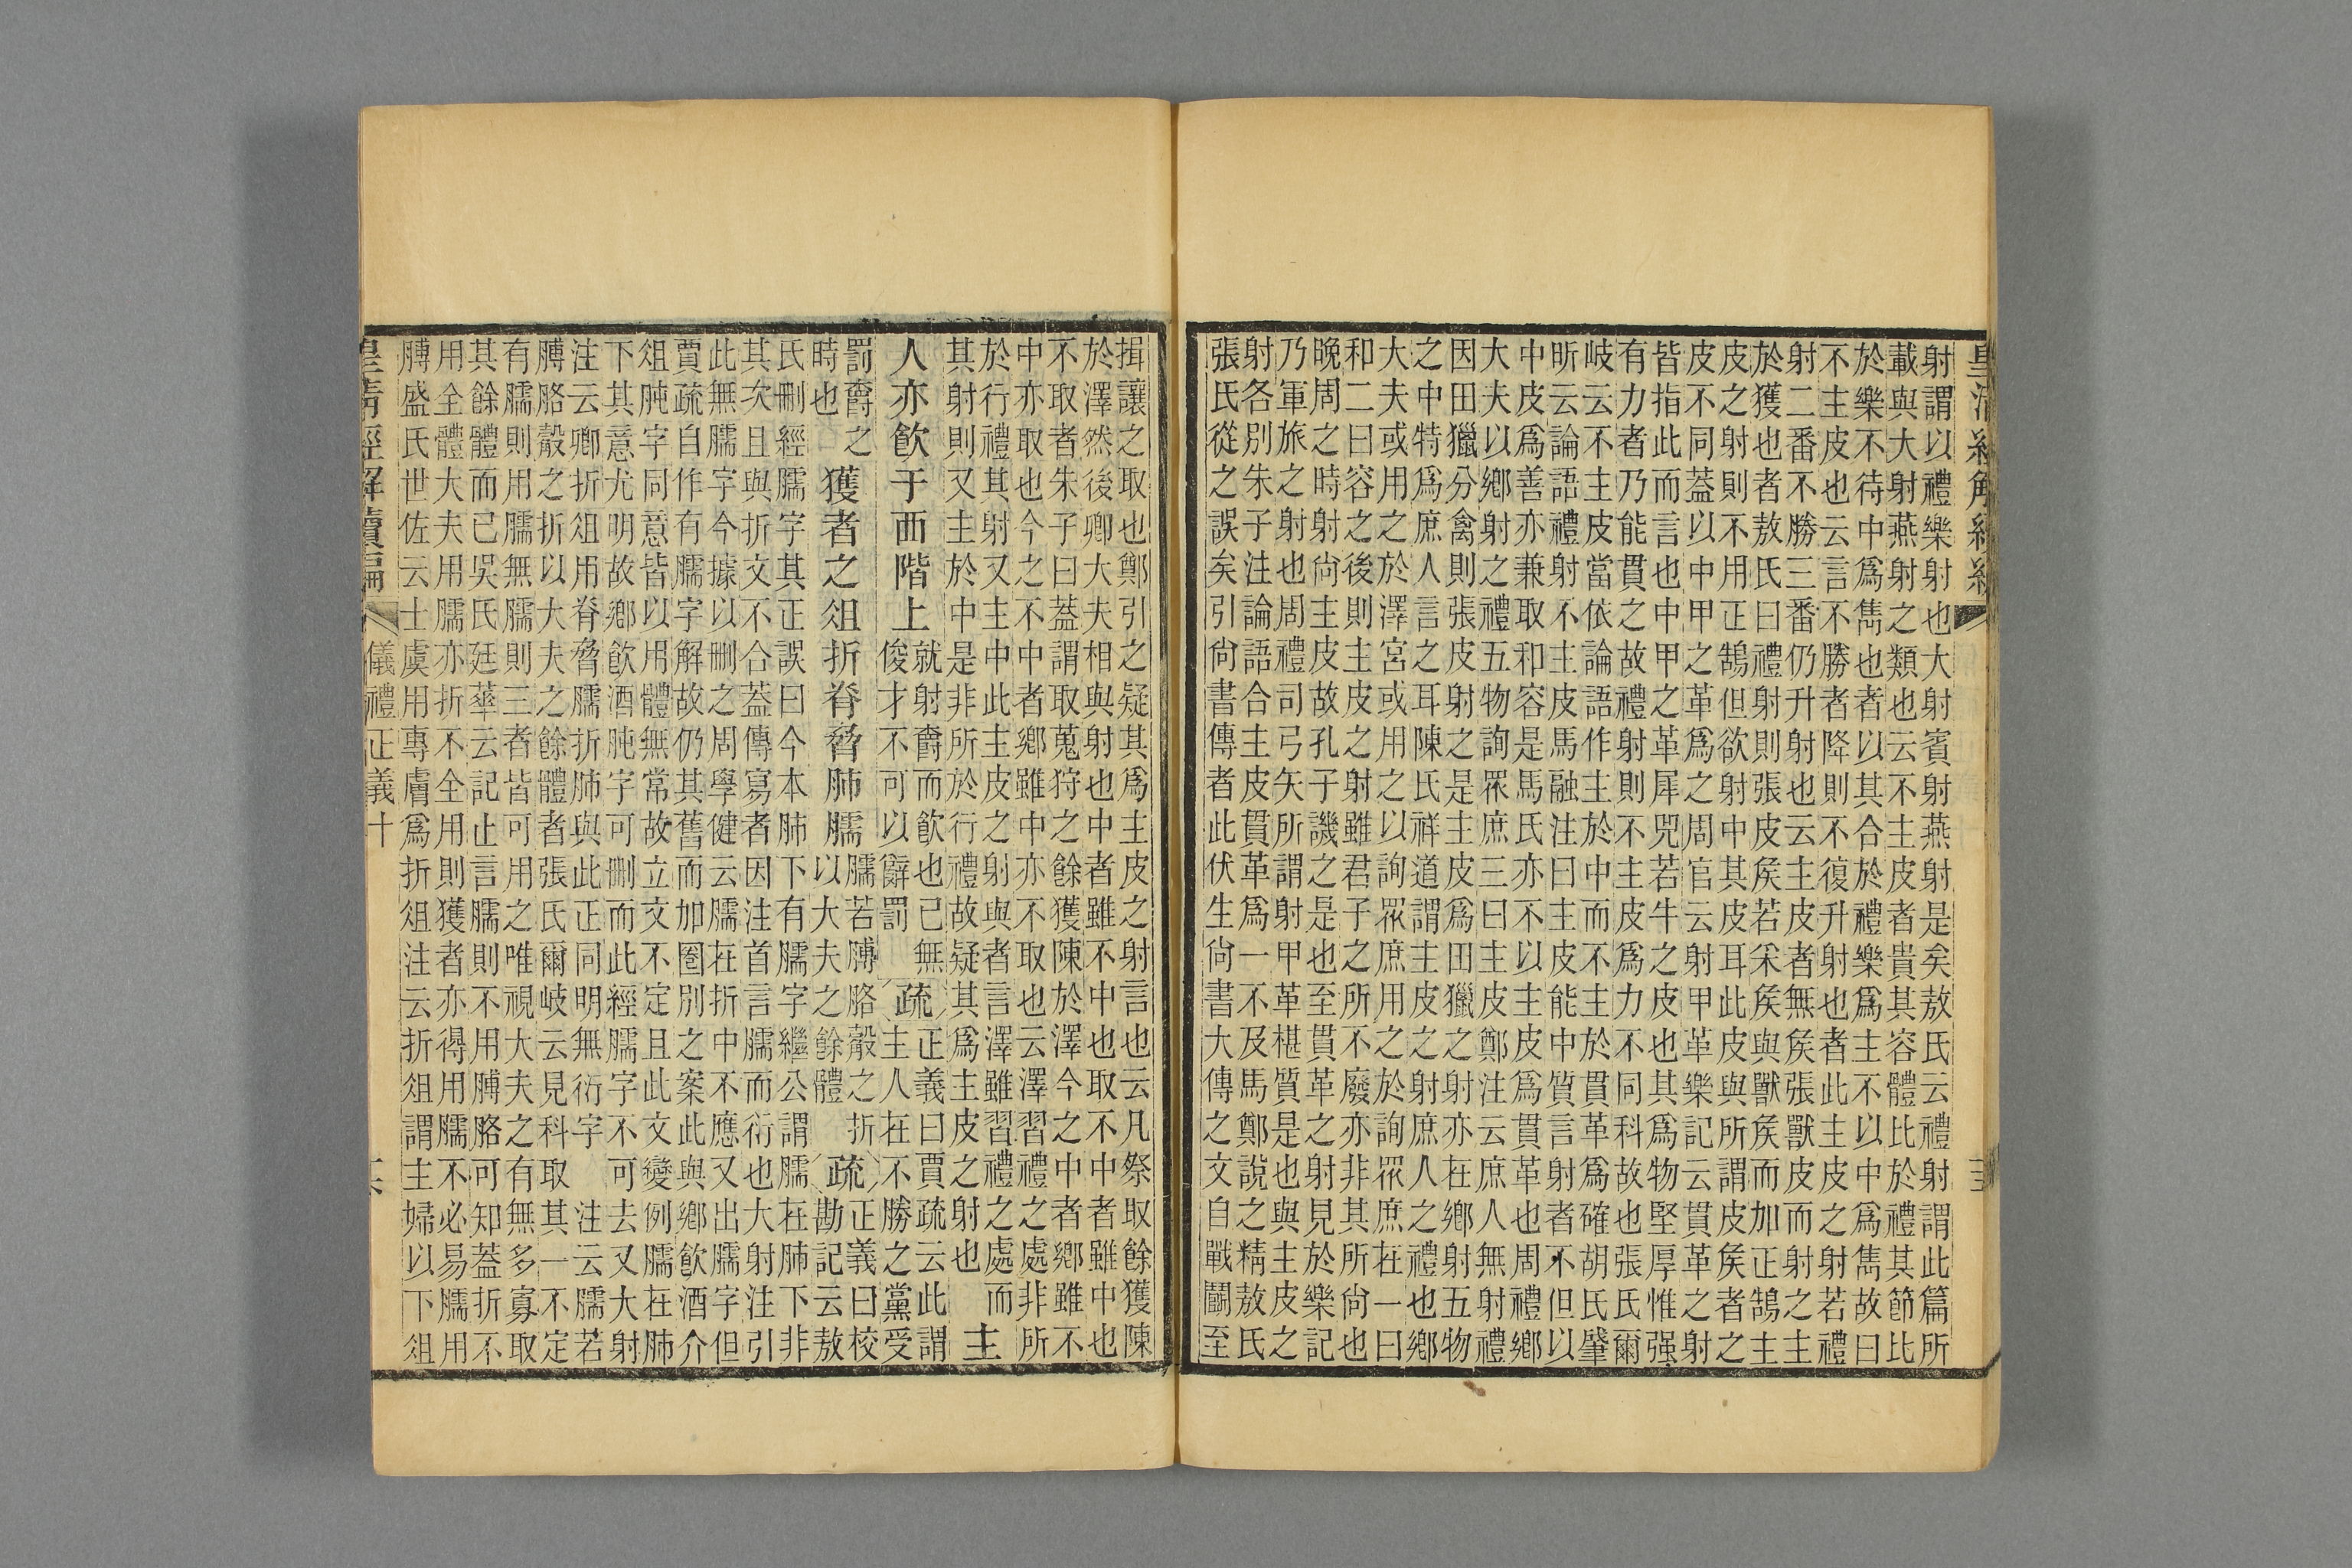 皇清經解續編
射謂以禮樂射也大射賓射燕射是矣敖氏云禮射謂此篇所
載與大射燕射之類也云不主皮者貴其容體比於禮其節比
於樂不待中爲雋也者以其合於禮樂爲主不以中爲雋故曰
不主皮也云言不勝者降則不復升射也者此主皮之射若禮
射二番不勝三番仍升射也云主皮者無侯張獸皮而射之主
於獲也者敖氏曰禮射則張皮侯若采侯與獸侯而加正鵠主
皮之射則不用正鵠但欲射中其皮耳此皮與所謂皮侯者之
皮不同蓋以中甲之革爲之周官云射甲革樂記云貫革之射
皆指此而言也中甲之革犀兕若牛之皮也其爲物堅厚惟强
有力者乃能貫之故禮射則不主皮爲力不同科故也張氏爾
岐云不主皮當依論語作主於中而不主於貫革爲確胡氏肇
昕云論語禮射不主皮馬融注曰主皮能中質言射者不但以
中皮爲善亦兼取和容是馬氏亦不以主皮爲貫革也周禮鄉
大夫以鄉射之禮五物詢眾庶三曰主皮鄭注云庶人無射禮
因田獵分禽則張皮射之是主皮爲田獵之射亦在鄉射五物
之中特爲庶人言之耳陳氏祥道謂主皮之射庶人之禮也鄉
大夫或用之於澤宮或用之以詢眾庶用之於詢眾庶在一曰
和二曰容之後則主皮之射雖君子之所不廢亦非其所尙也
晚周之時射尙主皮故孔子譏之是也至貫革之射見於樂記
乃軍旅之射也周禮司弓矢所謂射甲革椹質是也與主皮之
射各別朱子注論語合主皮貫革爲一不及馬鄭說之精敖氏
張氏從之誤矣引尙書傳者此伏生尙書大傳之文自戰鬬至
揖讓之取也鄭引之疑其爲主皮之射言也云凡祭取餘獲陳
於澤然後卿大夫相與射也中者雖不中也取不中者雖中也
不取者朱子曰蓋謂取蒐狩之餘獲陳於澤今之中者鄉雖不
中亦取也今之不中者鄉雖中亦不取也云澤習禮之處非所
於行禮其射又主中此主皮之射與者言澤雖習禮之處而
其射則又主於中是非所於行禮故疑其爲主皮之射也 主
人亦飲于西階上 就射爵而飲也已無俊才不可以辭罰 疏 正義曰賈疏云此謂主人在不勝之黨受
罰爵之時也 獲者之俎折脊脅肺臑 臑若膊胳觳之折以大夫之餘體 疏 正義曰校勘記云敖
氏刪經臑字其正誤曰今本肺下有臑字繼公謂臑在肺下非
其次且與折文不合蓋傳寫者因注首言臑而衍也大射注引
此無臑字今據以刪之周學健云臑在折中不應又出臑字但
賈疏自作有臑字解故仍其舊而加圈別之案此與鄉飲酒介
俎肫字同意皆以用體無常故立文不定且此文變例臑在肺
下其意尤明故鄉飲酒肫字可刪而此經臑字不可去又大射
注云卿折俎用脊脅臑折肺與此正同明無衍字 注云臑若
膊胳觳之折以大夫之餘體者張氏爾岐云見科取其一不定
有臑則用臑無臑則三者皆可用之唯視大夫之有無多寡取
其餘體而已吳氏廷華云記止言臑則不用膊胳可知蓋折不
用全體大夫用臑亦折不全用則獲者亦得用臑不必易臑用
膊盛氏世佐云士虞用專膚爲折俎注云折俎謂主婦以下俎
皇清經解續編 儀禮正義十